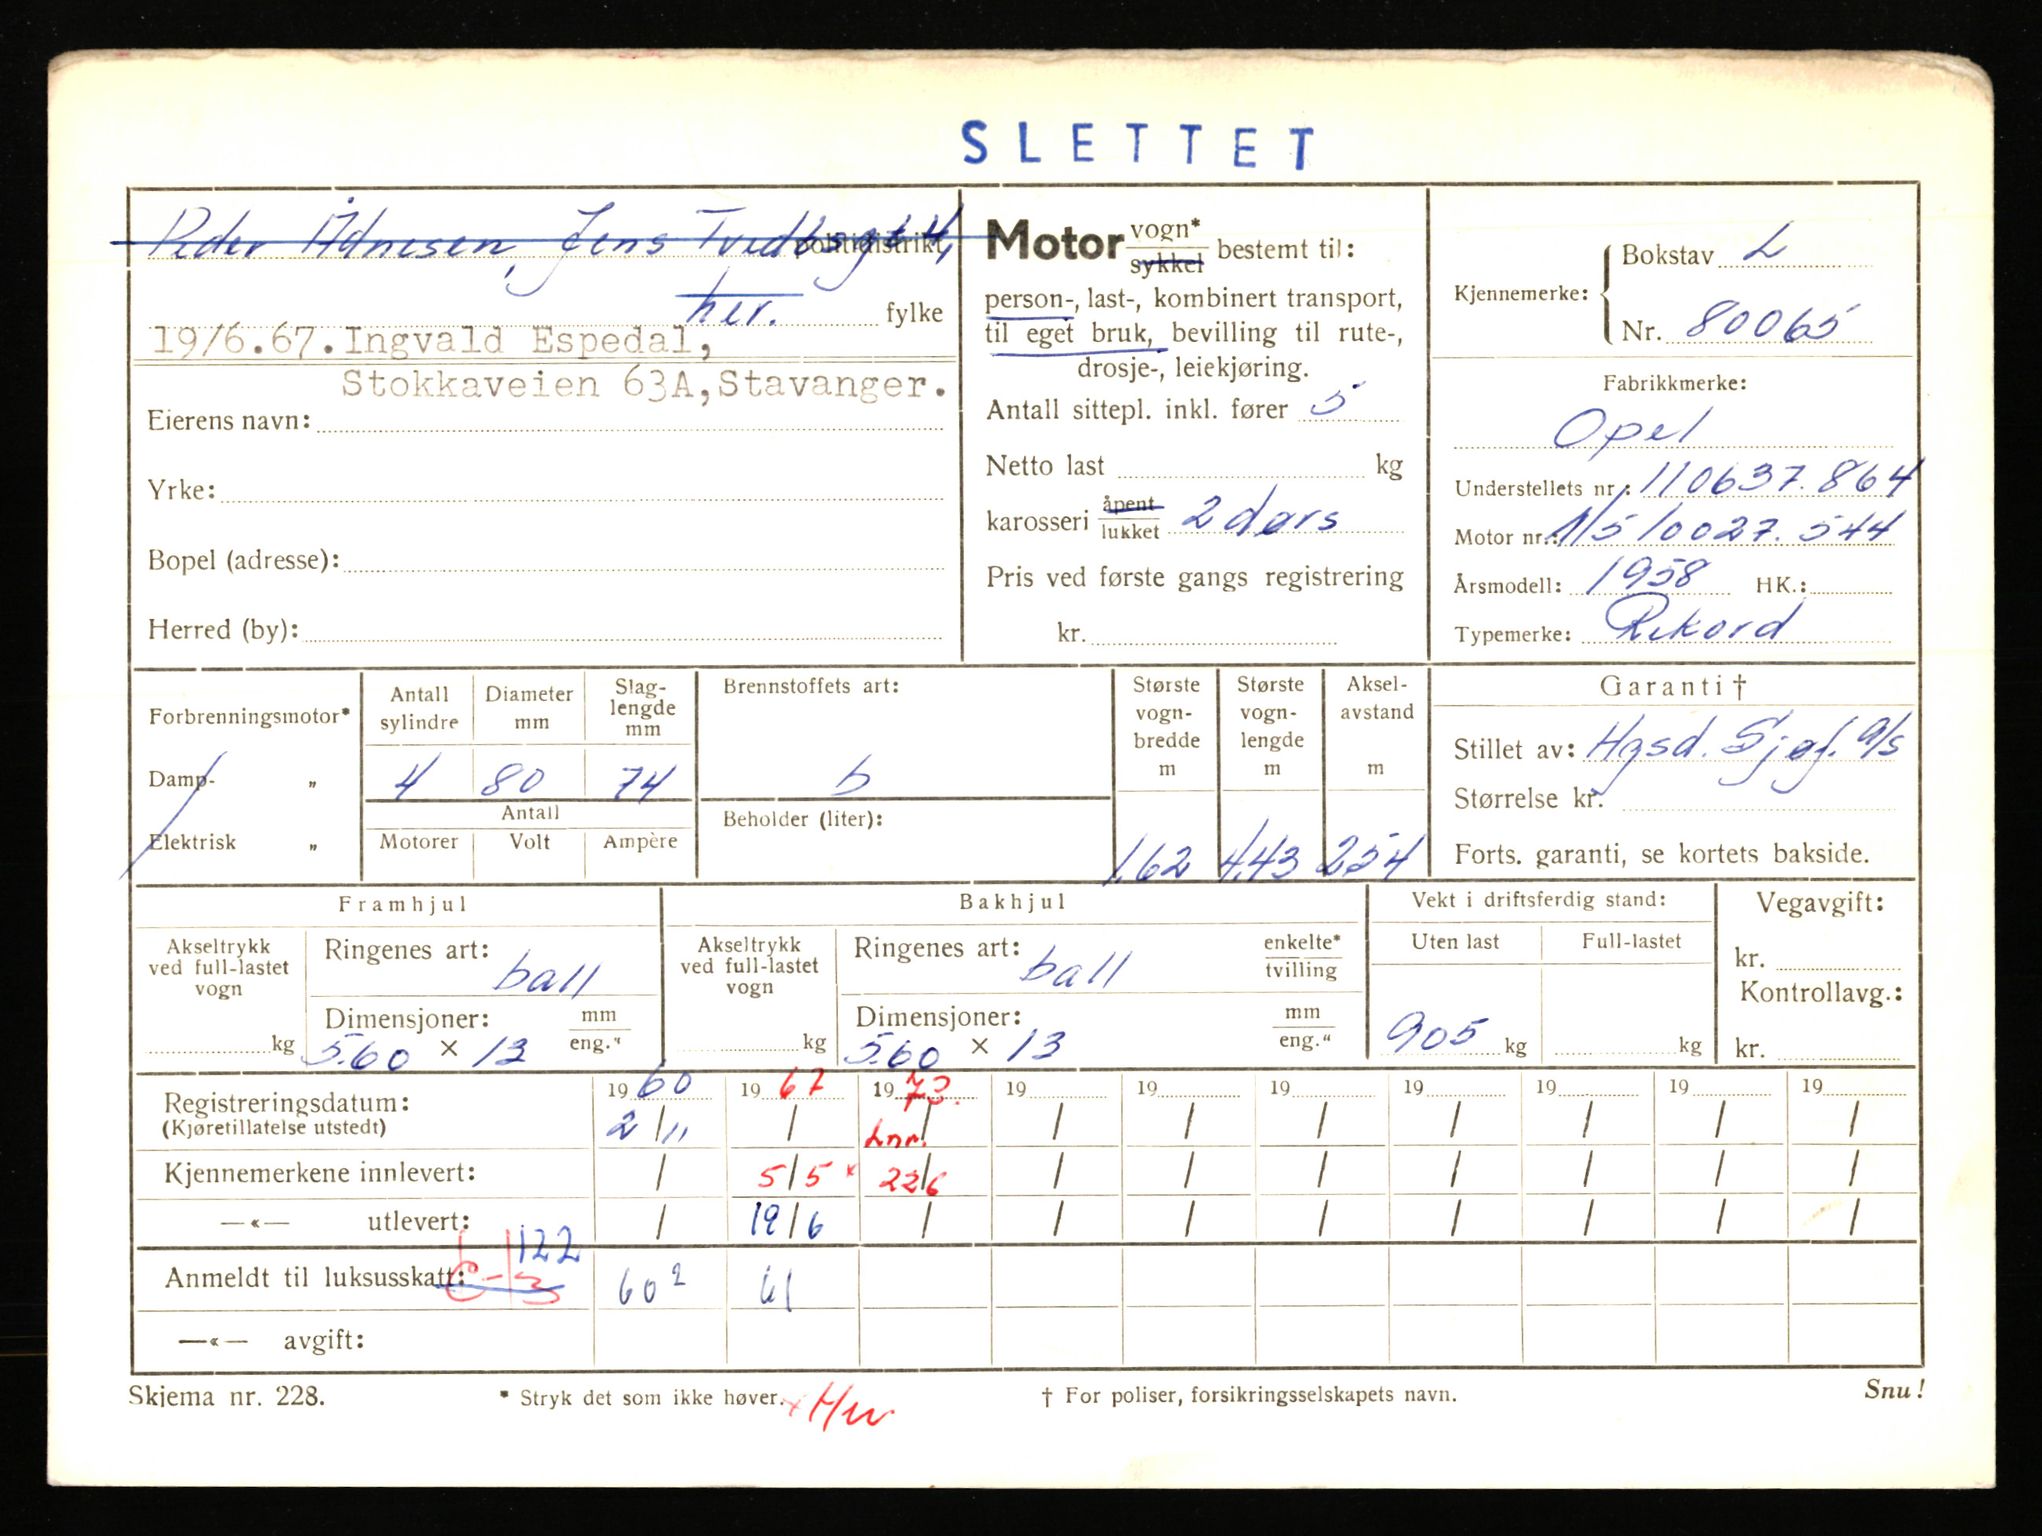 SLETTET
Peder Ådnesen, Jens Tvedtsgt 4, politidistrikt,
her. fylke
19/6.67. Ingvald Espedal,
Stokkaveien 63A, Stavanger.
Eierens navn:
Yrke:
Bopel (adresse):
Herred (by):
Motor vogn* sykkel bestemt til:
person-, last-, kombinert transport,
til eget bruk, bevilling til rute-,
drosje-, leiekjøring.
Antall sittepl. inkl. fører 5
Netto last kg
karosseri åpent lukket 2 dørs
Pris ved første gangs registrering
kr.
Kjennemerke: Bokstav L
Nr. 80065
Fabrikkmerke:
Opel
Understellets nr.: 110637.864
Motor nr.: 1/510027.544
Årsmodell: 1958 HK.:
Typemerke: Rekord
Forbrenningsmotor*
Damp- „
Elektrisk „
Antall sylindre
Diameter mm
Slag- lengde mm
4 80 74
Antall
Motorer Volt Ampère
Brennstoffets art:
b
Beholder (liter):
Største vogn- bredde m
1.62
Største vogn- lengde m
4.43
Aksel- avstand m
254
Garanti †
Stillet av: Hgsd. Sjøf. a/s
Størrelse kr.
Forts. garanti, se kortets bakside.
Framhjul
Akseltrykk ved full-lastet vogn
kg
Ringenes art: ball
Dimensjoner: mm eng."
5.60 × 13
Bakhjul
Akseltrykk ved full-lastet vogn
kg
Ringenes art: ball enkelte* tvilling
Dimensjoner: mm eng."
5.60 × 13
Vekt i driftsferdig stand:
Uten last Full-lastet
905 kg kg
Vegavgift:
kr.
Kontrollavg.:
kr.
Registreringsdatum: 1960 1967 1973. 19 19 19 19 19 19 19
(Kjøretillatelse utstedt) 2/11 / Lnr. / / / / / / / /
Kjennemerkene innlevert: / 5/5 x 22/6 / / / / / / /
—«— utlevert: / 19/6 / / / / / / / /
122
Anmeldt til luksusskatt: 6-13 60² 61
—«— avgift:
Skjema nr. 228.
* Stryk det som ikke høver. x Hu
† For poliser, forsikringsselskapets navn.
Snu!